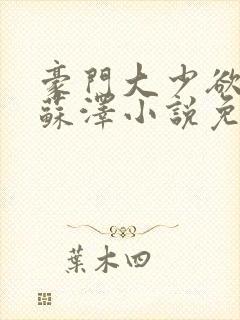 豪門大少欲
蘇澤小説免
葉木四